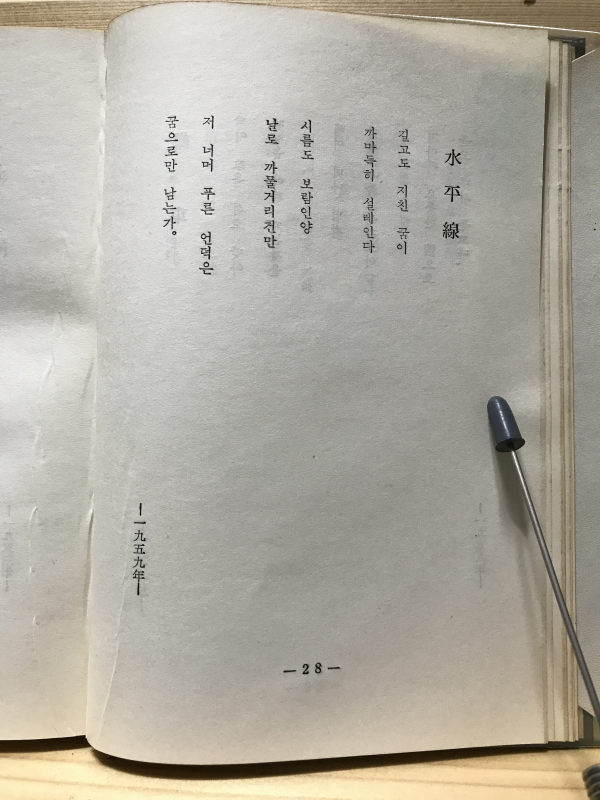 水平線
길고도 지친 꿈이
까마득히 설레인다
시름도 보람인양
날로 까물거리건만
저 너머 푸른 언덕은
꿈으로만 남는가。
—一九五九年—
—28—